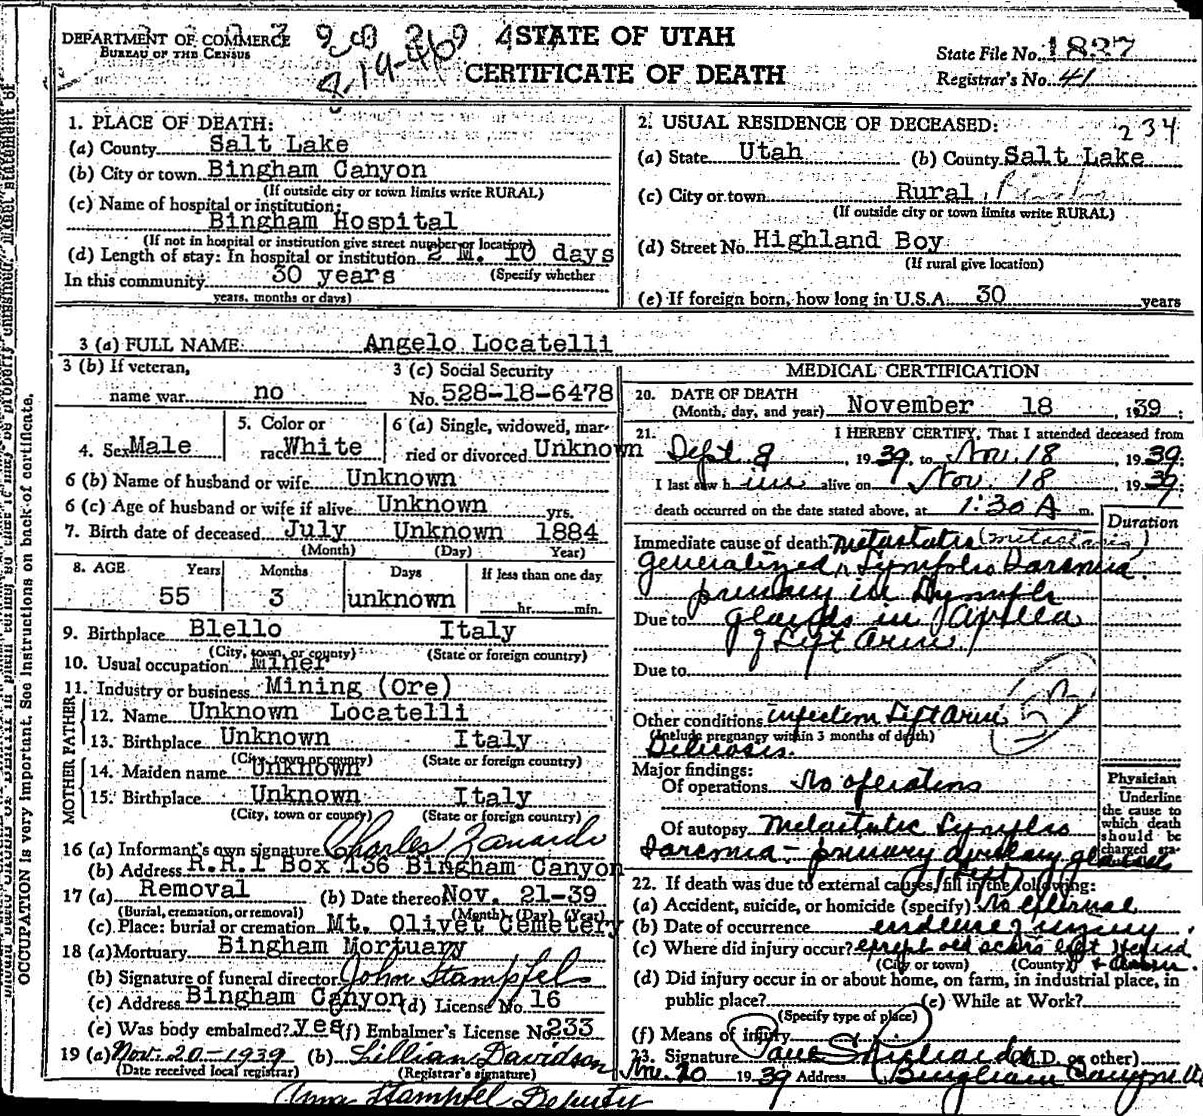 DEPARTMENT OF COMMERCE
BUREAU OF THE CENSUS
STATE OF UTAH
CERTIFICATE OF DEATH
State File No. 1837
Registrar's No. 41
1. PLACE OF DEATH:
(a) County Salt Lake
(b) City or town Bingham Canyon
(If outside city or town limits write RURAL)
(c) Name of hospital or institution:
Bingham Hospital
(If not in hospital or institution give street number or location)
(d) Length of stay: In hospital or institution 2 M. 10 days
In this community 30 years (Specify whether
years, months or days)
2. USUAL RESIDENCE OF DECEASED: 234
(a) State Utah (b) County Salt Lake
(c) City or town Rural
(If outside city or town limits write RURAL)
(d) Street No. Highland Boy
(If rural give location)
(e) If foreign born, how long in U.S.A. 30 years
3 (a) FULL NAME Angelo Locatelli
3 (b) If veteran,
name war no
3 (c) Social Security
No. 528-18-6478
4. Sex Male
5. Color or
race White
6 (a) Single, widowed, mar-
ried or divorced Unknown
6 (b) Name of husband or wife Unknown
6 (c) Age of husband or wife if alive Unknown yrs.
7. Birth date of deceased July Unknown 1884
(Month) (Day) Year)
8. AGE Years Months Days If less than one day
55 3 unknown hr. min.
9. Birthplace Blello Italy
(City, town, or county) (State or foreign country)
10. Usual occupation Miner
11. Industry or business Mining (Ore)
FATHER
12. Name Unknown Locatelli
13. Birthplace Unknown Italy
(City, town or county) (State or foreign country)
MOTHER
14. Maiden name Unknown
15. Birthplace Unknown Italy
(City, town or county) (State or foreign country)
16 (a) Informant's own signature Charles Zanardo
(b) Address R.R.1 Box 136 Bingham Canyon
17 (a) Removal (b) Date thereof Nov. 21-39
(Burial, cremation, or removal) (Month) (Day) (Year)
(c) Place: burial or cremation Mt. Olivet Cemetery
18 (a) Mortuary Bingham Mortuary
(b) Signature of funeral director John Stampfel
(c) Address Bingham Canyon (d) License No. 16
(e) Was body embalmed? yes (f) Embalmer's License No. 233
19 (a) Nov. 20-1939 (b) Lillian Davidson
(Date received local registrar) (Registrar's signature)
Anna Stampfel Deputy
MEDICAL CERTIFICATION
20. DATE OF DEATH
(Month, day, and year) November 18, 1939
21. I HEREBY CERTIFY, That I attended deceased from
Sept 8 1939, to Nov. 18 1939;
I last saw him alive on Nov. 18 1939;
death occurred on the date stated above, at 1:30 A m.
Duration
Immediate cause of death Metastatic (metastasis)
Generalized Lympho Sarcoma
primary in Lymph
Due to glands in Axilla
of Left Arm.
Due to
Other conditions infection Left Arm
(Include pregnancy within 3 months of death)
Major findings:
Of operations No operations
Of autopsy Metastatic Lympho
Sarcoma - primary axillary glands
Left
Physician
Underline
the cause to
which death
should be
charged sta-
22. If death was due to external causes, fill in the following:
(a) Accident, suicide, or homicide (specify) No external
(b) Date of occurrence evidence of injury
(c) Where did injury occur? except old scars left Hand
(City or town) (County) + Arm.
(d) Did injury occur in or about home, on farm, in industrial place, in
public place? (e) While at Work?
(Specify type of place)
(f) Means of injury
23. Signature Paul (M.D. or other)
Nov. 20 1939 Address Bingham Canyon
OCCUPATION is very important. See instructions on back of certificate.